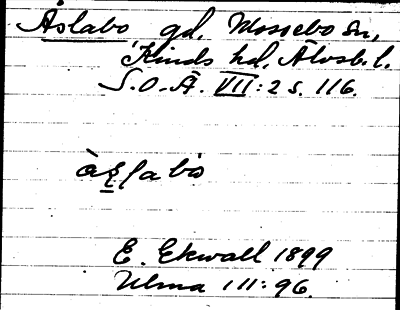 Åslabo gd. Mossebo sn,
Kinds hd. Älvsb. l.
S.O.Ä. VII: 2 s. 116.
E. Ekwall 1899
Ulma 111:96.